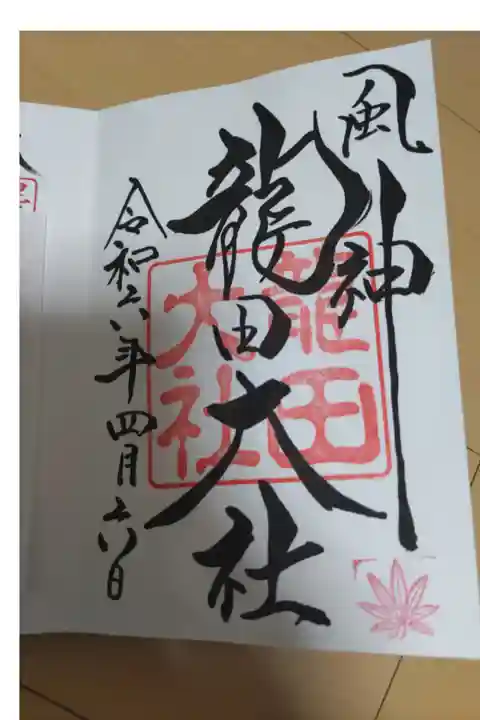 風神
龍田大社
龍田
大社
令和六年四月六日